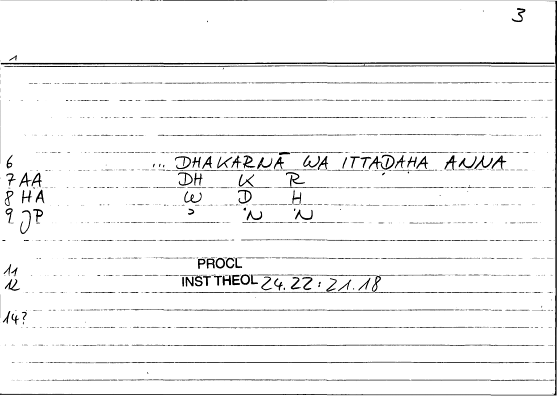 3
1
6 ... DHAKARNĀ WA ITTAḌAḤA ANNA
7 AA DH K R
8 HA W Ḍ Ḥ
9 JP ʾ N N
11 PROCL
12 INST THEOL 24.22 : 21.18
14?